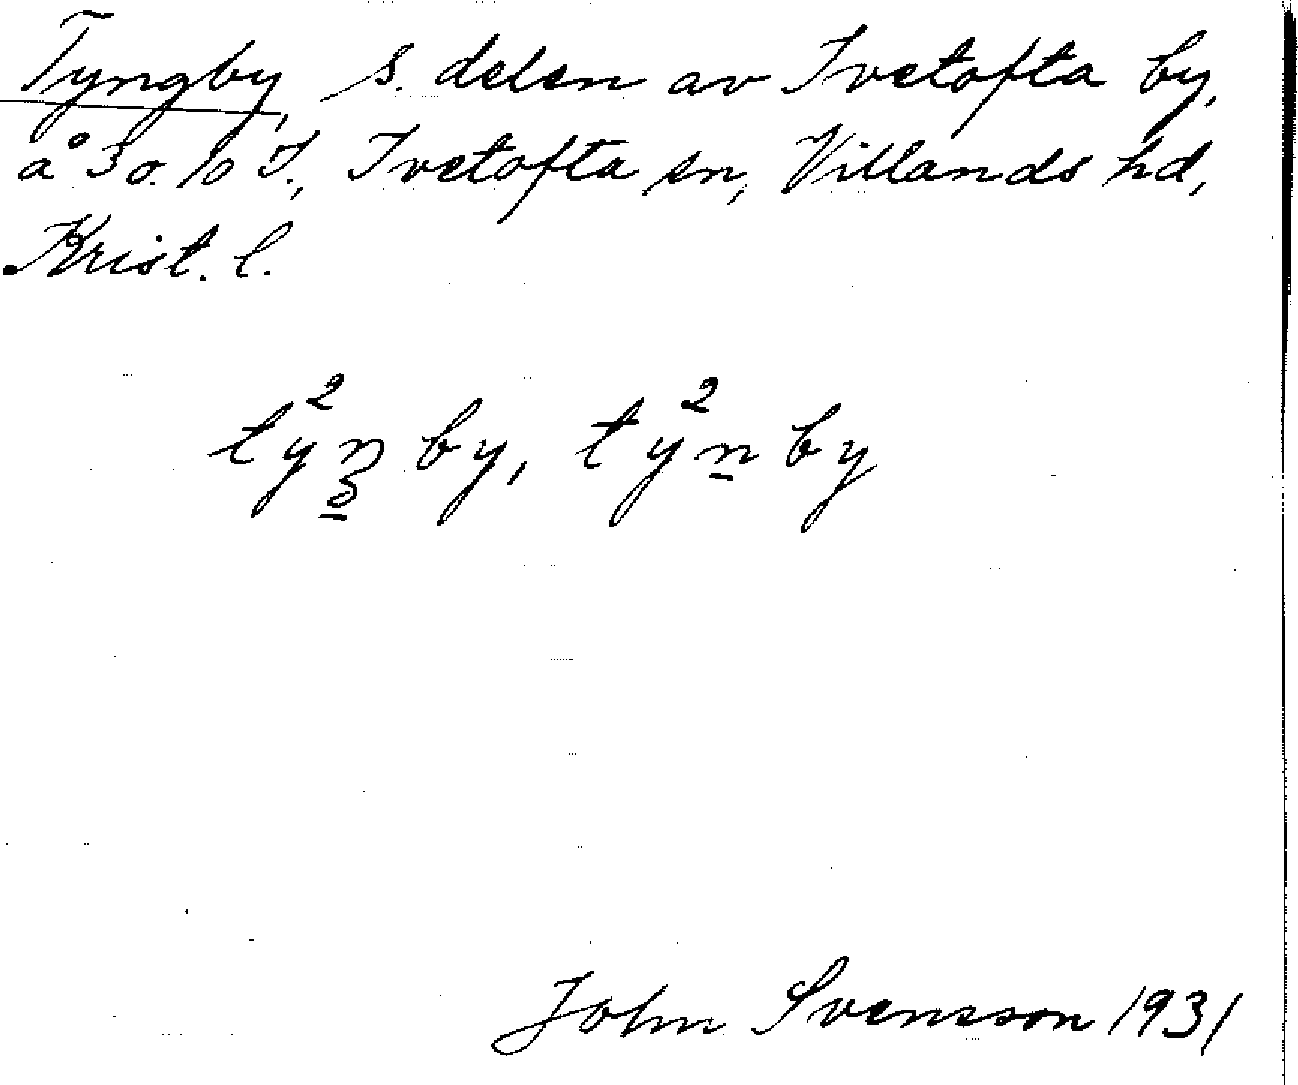 Tyngby, S. delen av Ivetofta by,
å 3 o. 10 I., Ivetofta sn, Villands hd,
Krist. l.
ty²ŋby, ty²nby
John Svensson 1931